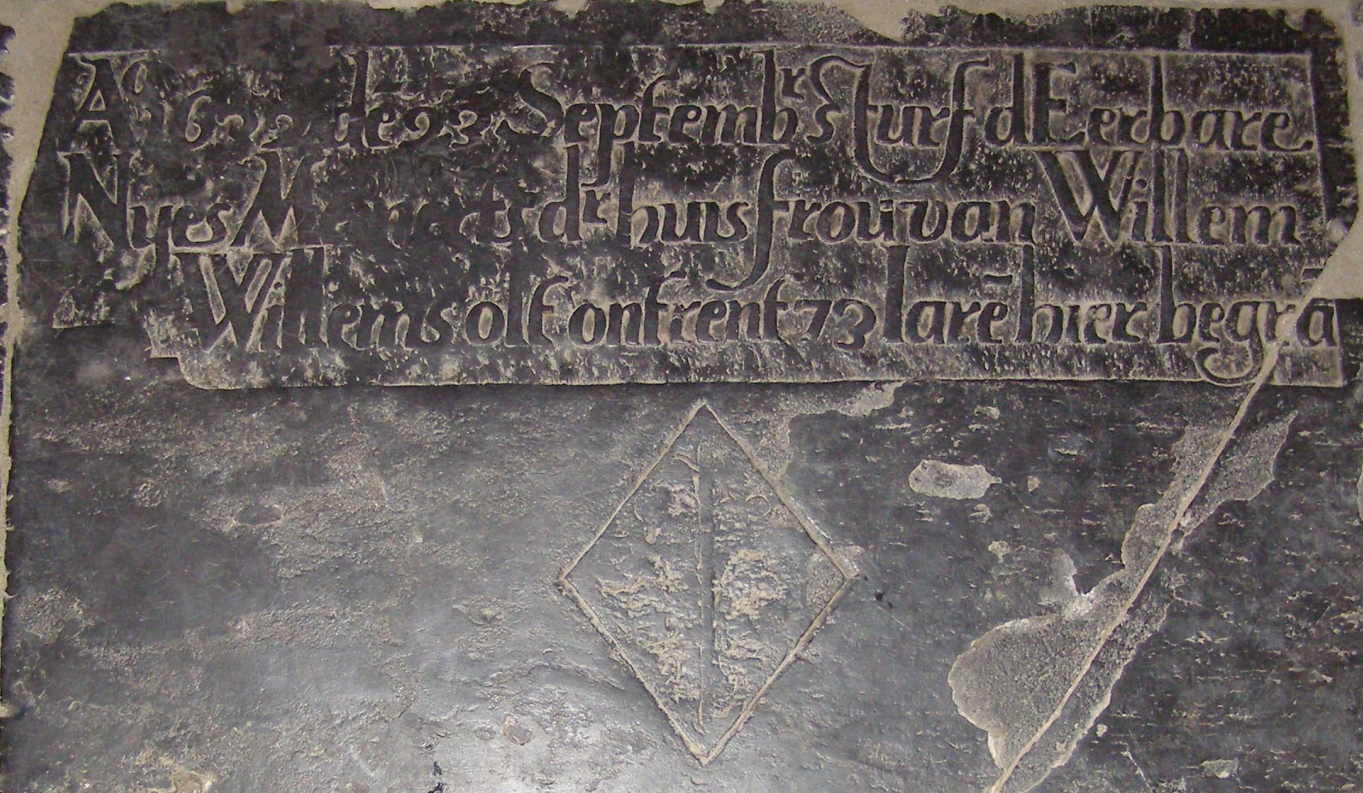 Aº 1632 de 23 Septembr sturf d Eerbare
Nyes Meynerts dr huisfrou van Willem
Willems olt ontrent 73 Iarē hier begrā